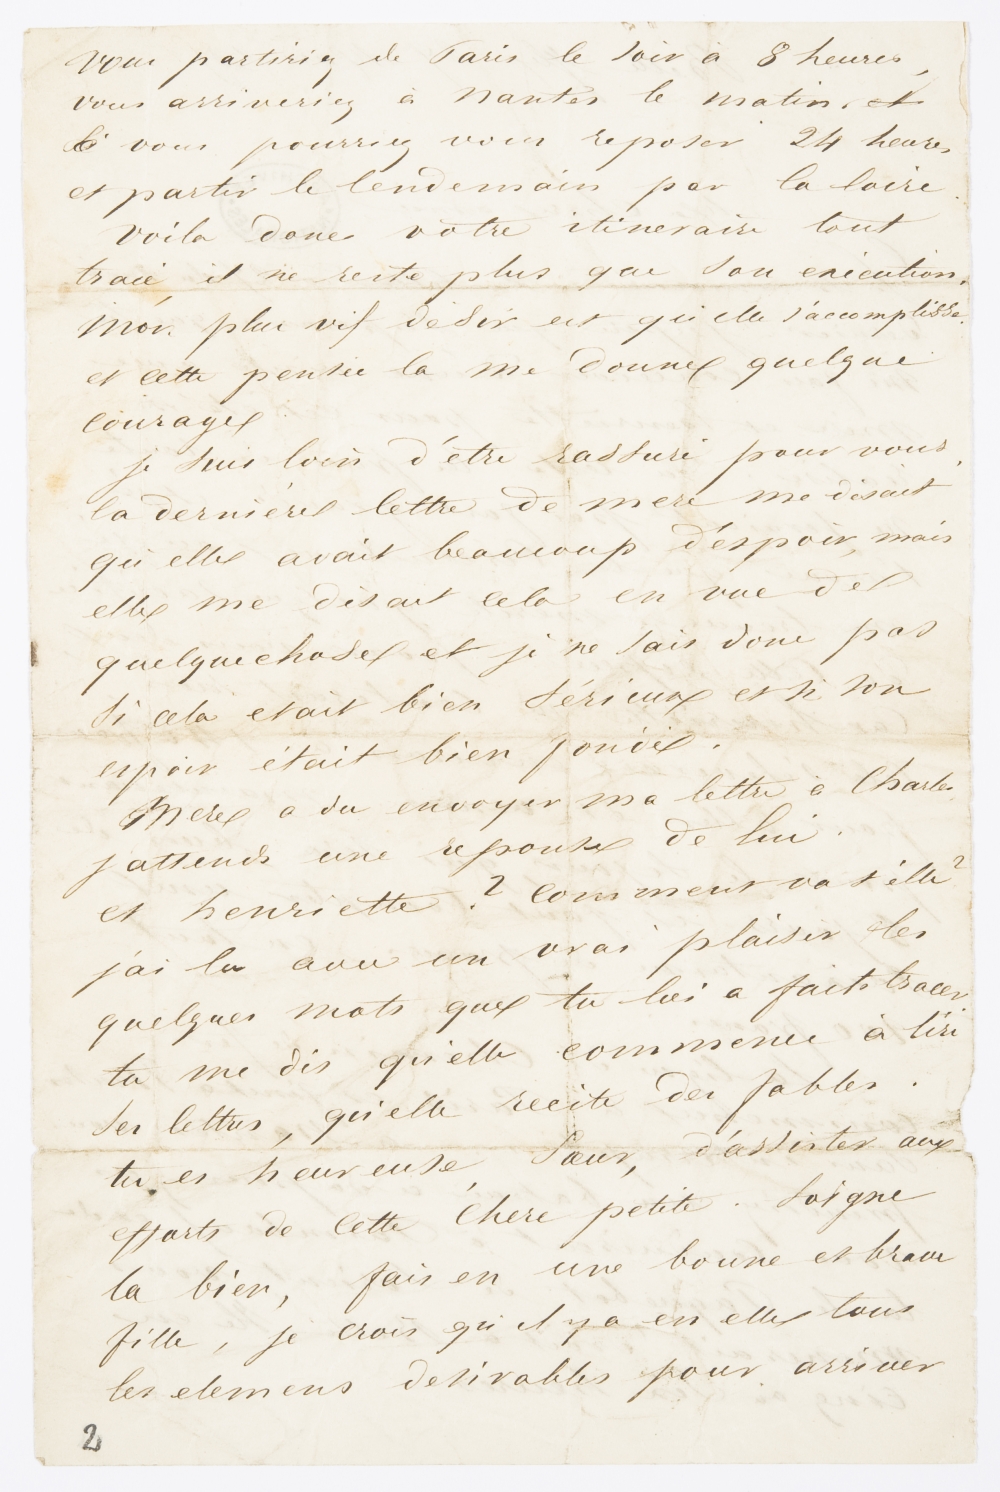 vous partiriez de Paris le soir à 8 heures,
vous arriveriez à Nantes le matin. et
là vous pourriez vous reposer 24 heures
et partir le lendemain par la loire.
Voila donc votre itineraire tout
tracé, il ne reste plus que son exécution.
Mon plus vif désir est qu'elle s'accomplisse.
et cette pensée la me donne quelque
courage
je suis loin d'être rassuré pour vous,
la dernière lettre de mere me disait
qu'elle avait beaucoup d'espoir, mais
elle me disait cela en vue de
quelquechose et je ne sais donc pas
si cela etait bien sérieux et si son
espoir était bien fondé.
Mere a du envoyer ma lettre à Charles
j'attends une reponse de lui.
et henriette ? Comment va t'elle ?
j'ai lu avec un vrai plaisir les
quelques mots que tu lui a faits tracer
tu me dis qu'elle commence à lire
ses lettres, qu'elle recite des fables.
tu es heureuse, Sœur, d'assister aux
efforts de cette chere petite. Soigne
la bien, fais en une bonne et brave
fille, je crois qu'il y a en elle tous
les elemens desirables pour arriver
2